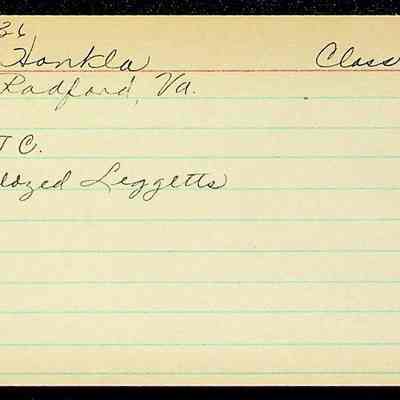 36
Honkla Class
Radford, Va.
TC.
loyed Leggetts